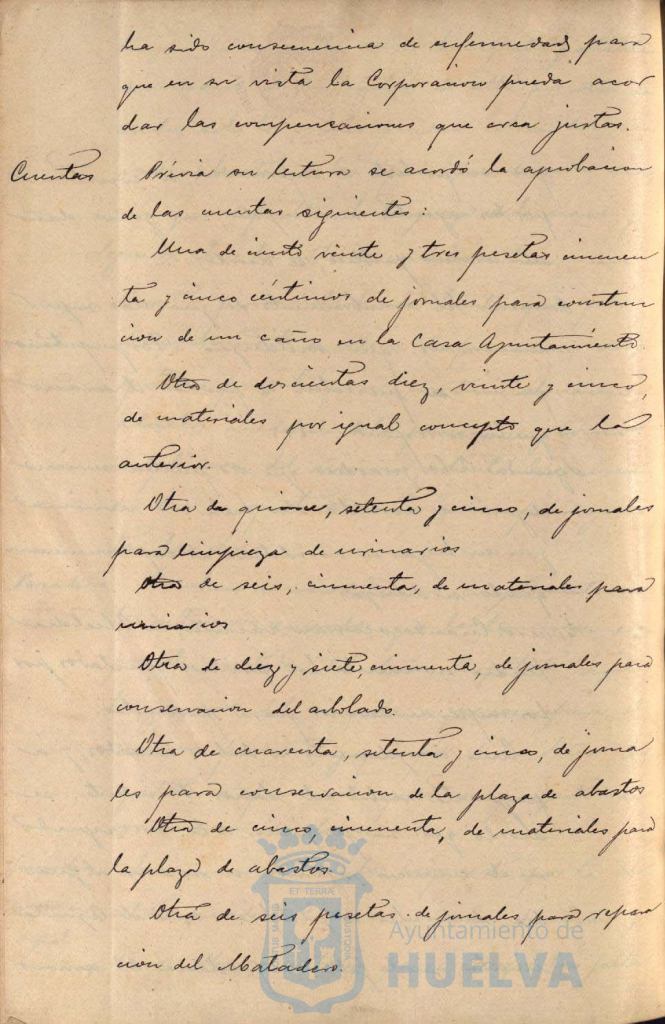 ha sido consecuencia de enfermedad, para
que en su vista la Corporacion pueda acor
dar las compensaciones que crea justas.
Cuentas
Prévia su lectura se acordó la aprobacion
de las cuentas siguientes:
Una de ciento veinte y tres pesetas cincuen
ta y cinco céntimos de jornales para construc
cion de un caño en la Casa Ayuntamiento.
Otra de doscientas diez, veinte y cinco,
de materiales por igual concepto que la
anterior.
Otra de quince, setenta y cinco, de jornales
para limpieza de urinarios
Otra de seis, cincuenta, de materiales para
urinarios
Otra de diez y siete, cincuenta, de jornales para
conservacion del arbolado.
Otra de cuarenta, setenta y cinco, de jorna
les para conservacion de la plaza de abastos
Otra de cinco, cincuenta, de materiales para
la plaza de abastos.
Otra de seis pesetas de jornales para repara
cion del Matadero.
ET TERRÆ
Ayuntamiento de
HUELVA